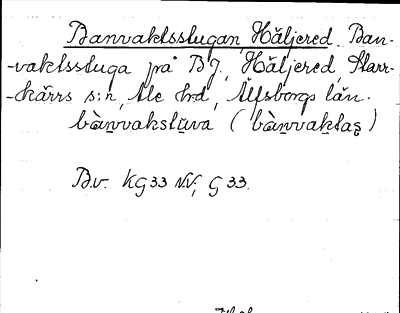 Banvaktsstugan, Häljered. Ban-
-vaktsstuga på BJ, Häljered, Starr-
-kärrs s:n, Ale hrd, Älfsborgs län.
bànvakstūva (bànvaktas̨)
Bv. KG33 NV, G33.